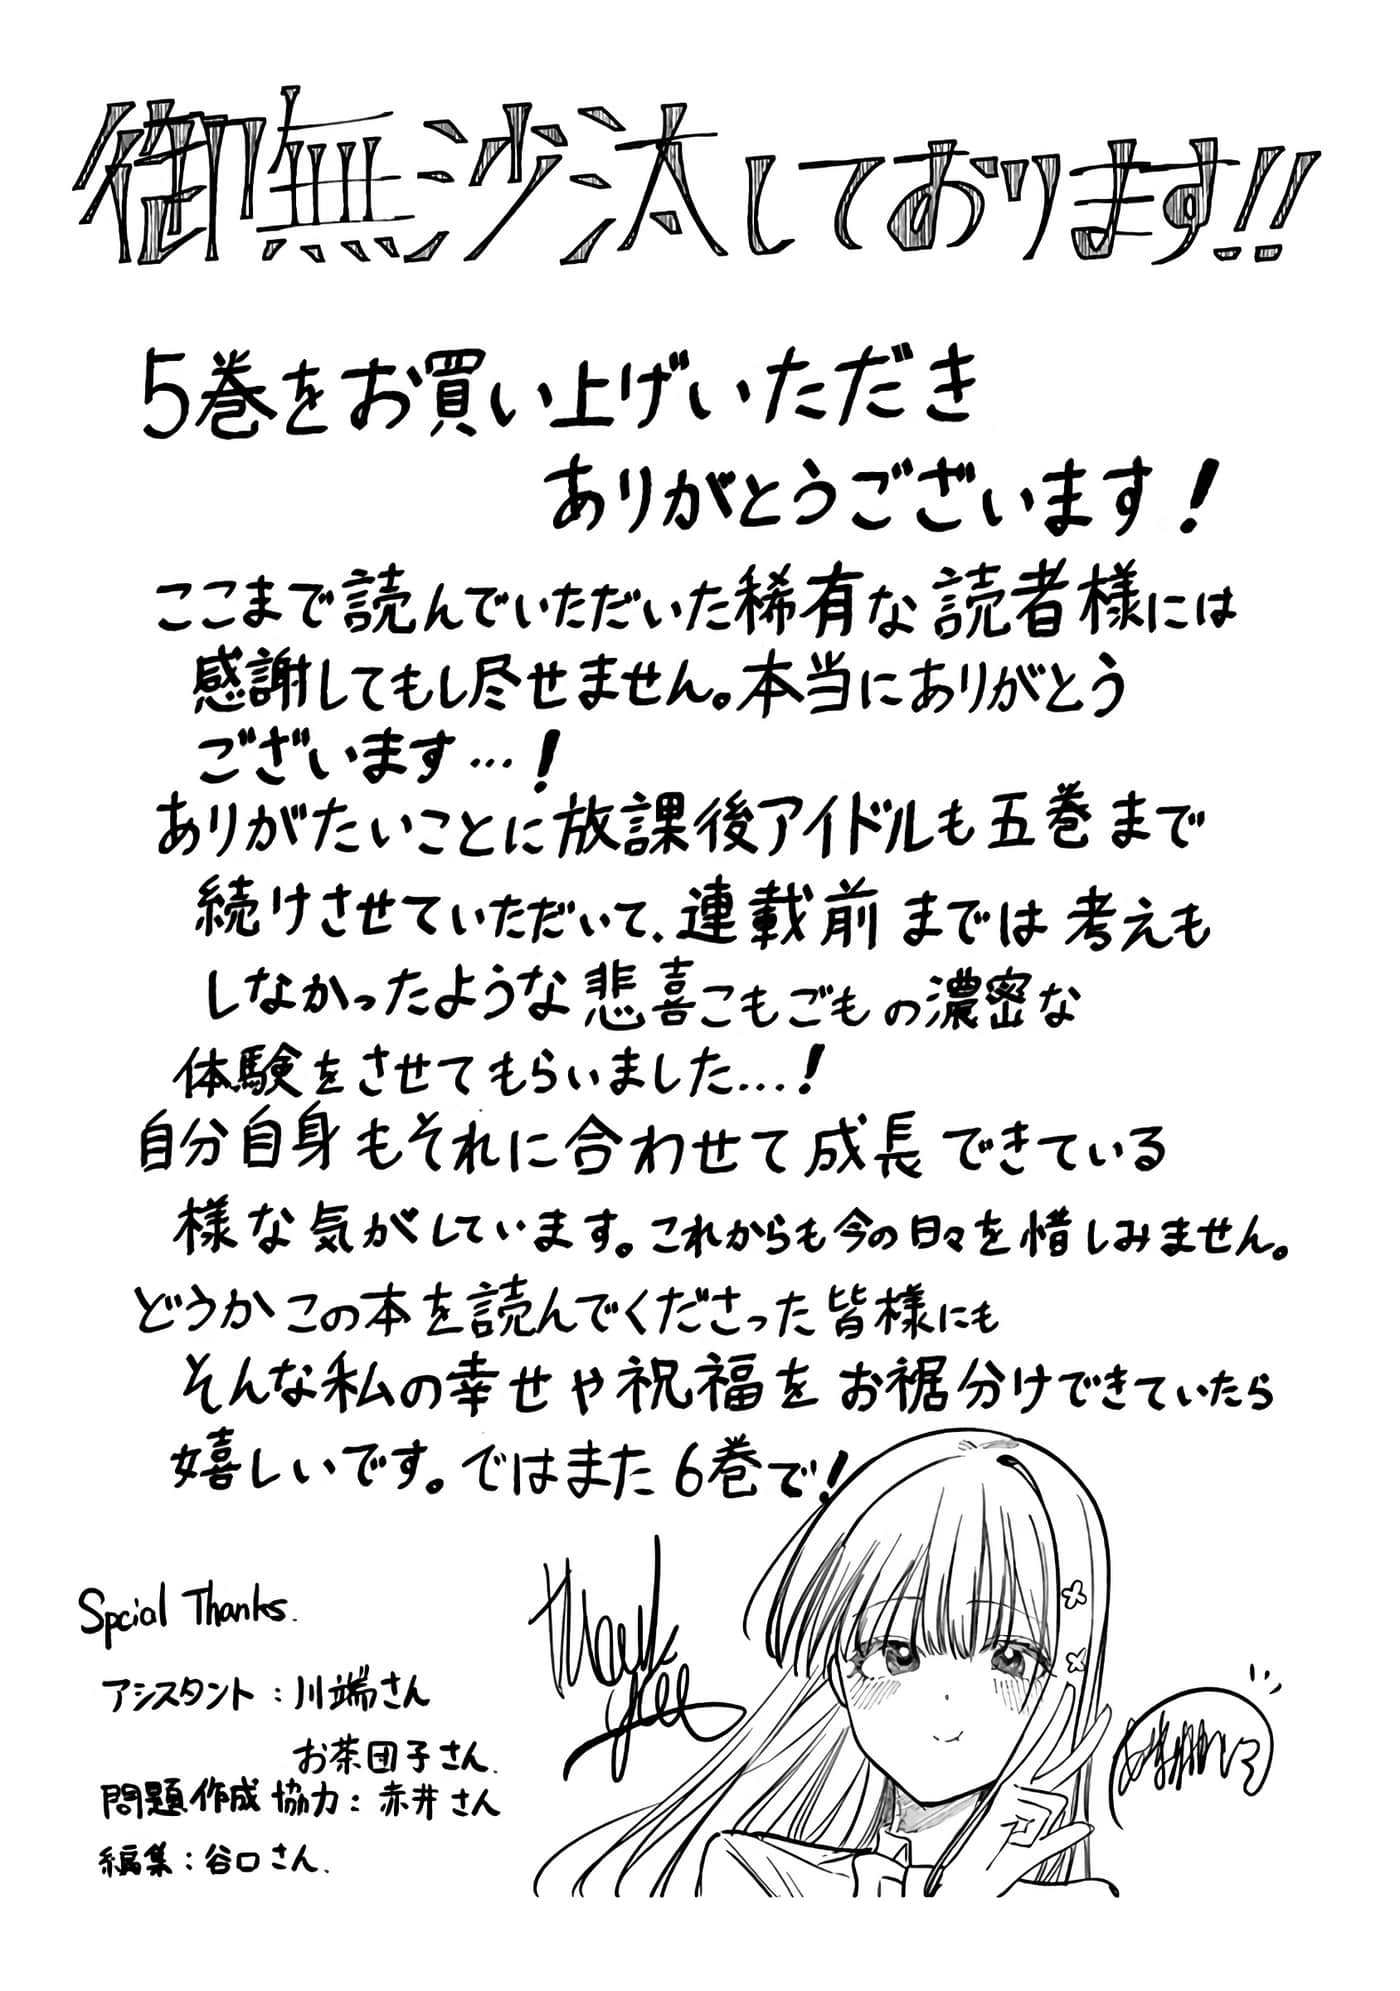 御無沙汰しております!!
5巻をお買い上げいただき
ありがとうございます!
ここまで読んでいただいた稀有な読者様には
感謝してもし尽せません。本当にありがとう
ございます…!
ありがたいことに放課後アイドルも五巻まで
続けさせていただいて、連載前までは考えも
しなかったような悲喜こもごもの濃密な
体験をさせてもらいました…!
自分自身もそれに合わせて成長できている
様な気がしています。これからも今の日々を惜しみません。
どうかこの本を読んでくださった皆様にも
そんな私の幸せや祝福をお裾分けできていたら
嬉しいです。ではまた6巻で!
Spcial Thanks.
アシスタント:川端さん
お茶団子さん.
問題作成協力:赤井さん
編集:谷口さん.
Thank
you